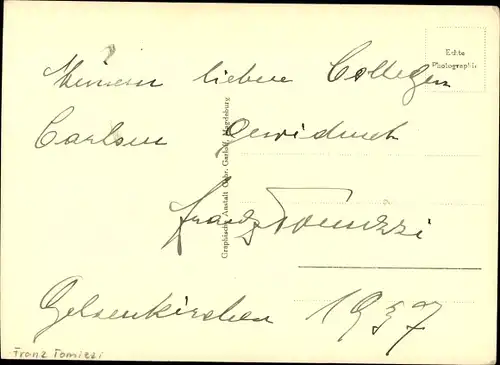 Echte
Photographie
Meinem lieben Collegen
Carlsen gewidmet
Franz Tomizzi
Gelsenkirchen 1937
Graphische Anstalt Gebr. Garloff, Magdeburg
Franz Tomizzi